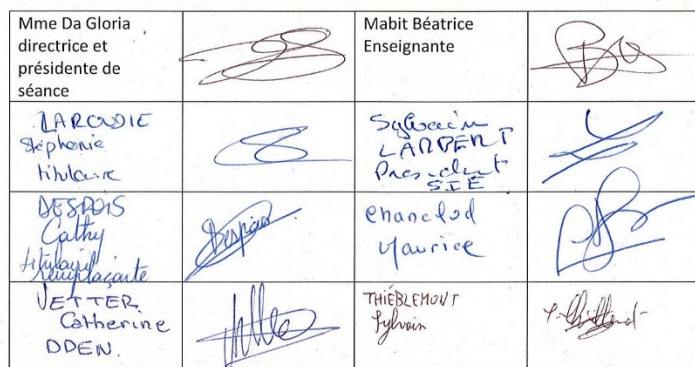 Mme Da Gloria
directrice et
présidente de
séance
Mabit Béatrice
Enseignante
LAROUDIE
Stéphanie
titulaire
Sylvain
LAMBERT
President
SIE
DESPOIS
Cathy
titulaire
remplaçante
Chanclud
Maurice
VETTER
Catherine
DDEN.
THIÉBLEMONT
Sylvain